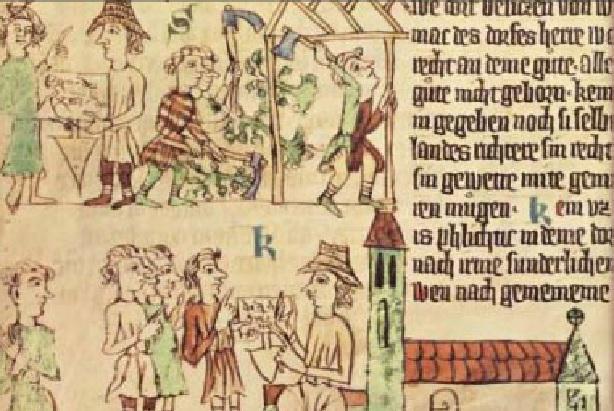 S
mac des dorfes herre
recht an deme gute. alle
gute nicht geborn. kein
gegeben noch si selb
landes richtere sin recht
sin gewette mite gem
ren mugen. k ein vz
is phlichtic in deme dor
nach irme sunderlichen
wen nach gemeineme
k